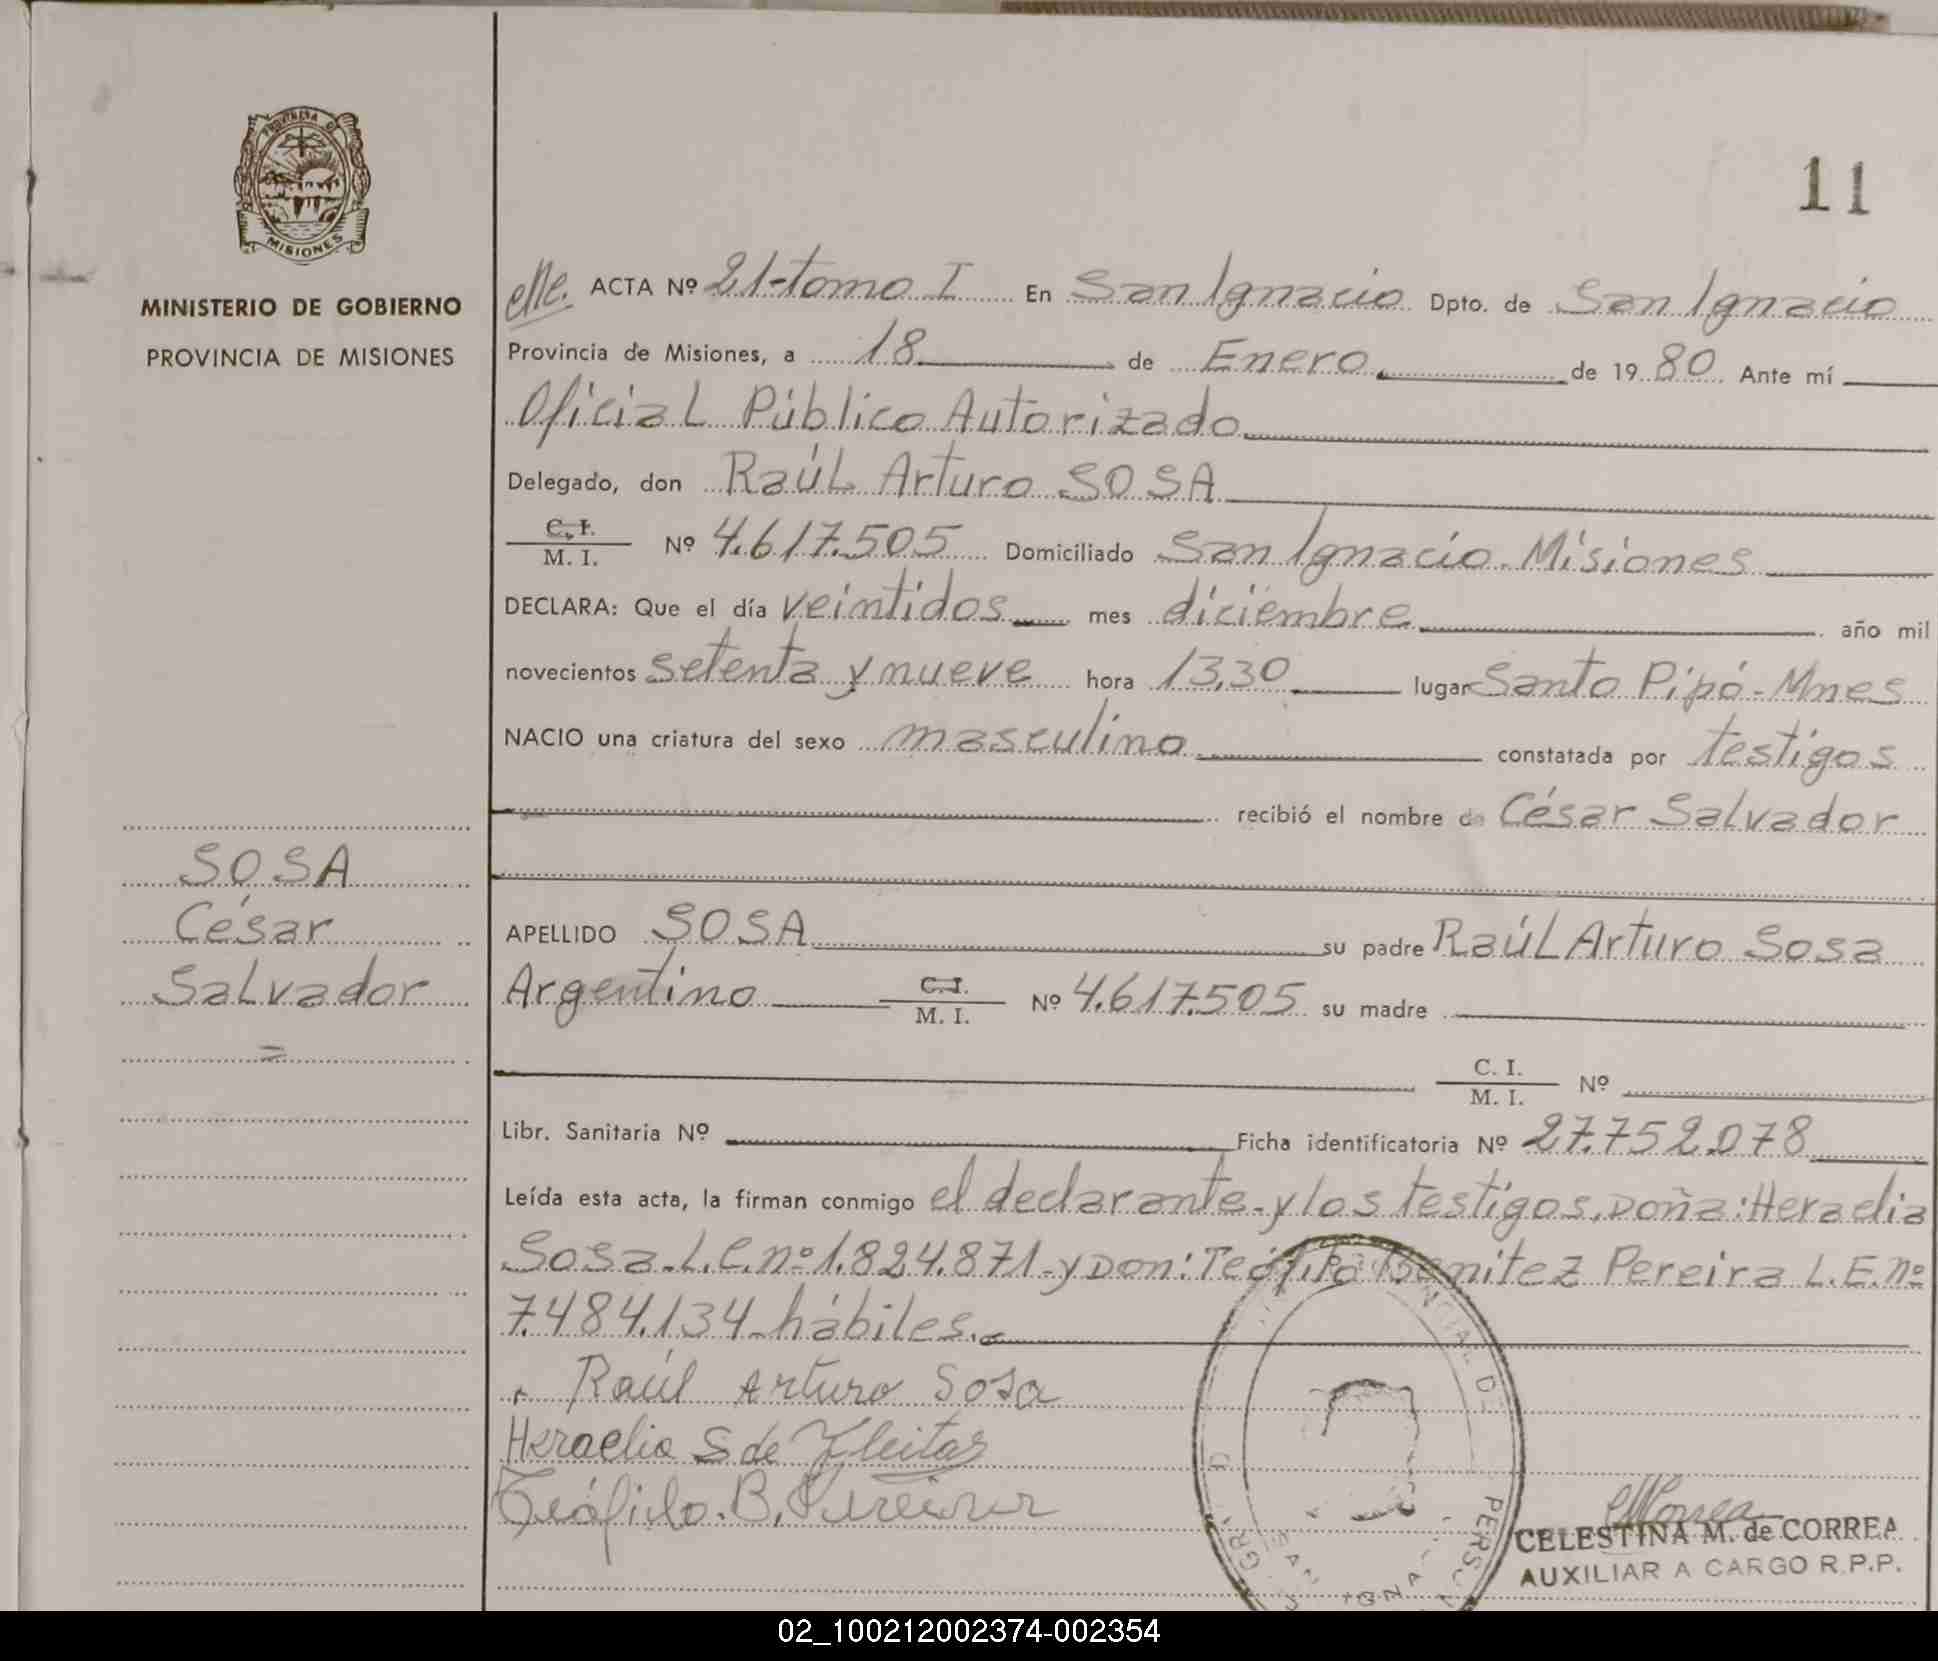 PROVINCIA DE
MISIONES
MINISTERIO DE GOBIERNO
PROVINCIA DE MISIONES
11
ACTA Nº 21-tomo I En San Ignacio Dpto. de San Ignacio
Provincia de Misiones, a 18 de Enero de 1980 Ante mí
Oficial Público Autorizado
Delegado, don Raúl Arturo SOSA
C. I.
M. I. Nº 4.617.505 Domiciliado San Ignacio-Misiones
DECLARA: Que el día veintidos mes diciembre año mil
novecientos setenta y nueve hora 13,30 lugar Santo Pipó-Mnes
NACIO una criatura del sexo masculino constatada por testigos
recibió el nombre de César Salvador
SOSA
César
Salvador
=
APELLIDO SOSA su padre Raúl Arturo Sosa
Argentino C. I.
M. I. Nº 4.617.505 su madre
C. I.
M. I. Nº
Libr. Sanitaria Nº Ficha identificatoria Nº 27.752.078
Leída esta acta, la firman conmigo el declarante-y los testigos, Doña: Heraclia
Sosa-L.C.nº 1.824.871-y Don: Teófilo Benitez Pereira L.E.nº
7.484.134-hábiles.
Raúl Arturo Sosa
Heraclia S de Fleitas
Teófilo. B. Pereira
CELESTINA M. de CORREA
AUXILIAR A CARGO R.P.P.
02_100212002374-002354